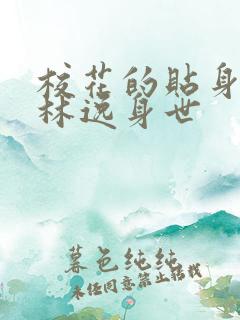 校花的贴身
林逸身世
暮色纯纯
未经同意禁止转载